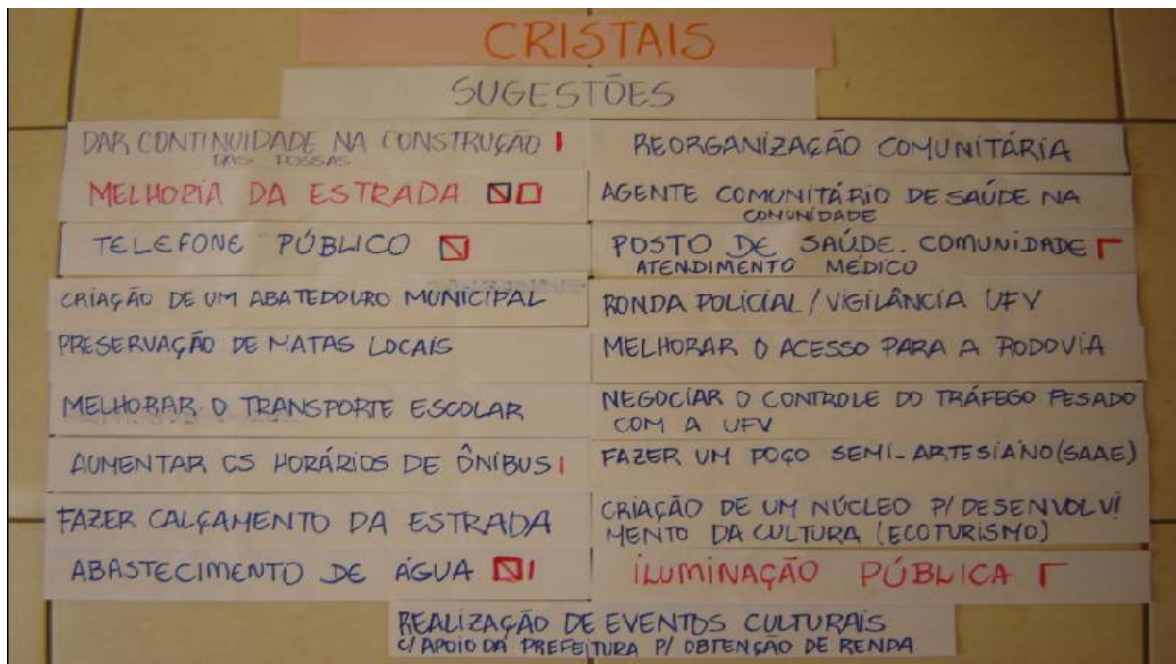 CRISTAIS
SUGESTÕES
DAR CONTINUIDADE NA CONSTRUÇÃO
DAS FOSSAS
MELHORIA DA ESTRADA
TELEFONE PÚBLICO
CRIAÇÃO DE UM ABATEDOURO MUNICIPAL
PRESERVAÇÃO DE MATAS LOCAIS
MELHORAR O TRANSPORTE ESCOLAR
AUMENTAR OS HORÁRIOS DE ÔNIBUS
FAZER CALÇAMENTO DA ESTRADA
ABASTECIMENTO DE ÁGUA
REORGANIZAÇÃO COMUNITÁRIA
AGENTE COMUNITÁRIO DE SAÚDE NA
COMUNIDADE
POSTO DE SAÚDE. COMUNIDADE
ATENDIMENTO MÉDICO
RONDA POLICIAL/VIGILÂNCIA UFV
MELHORAR O ACESSO PARA A RODOVIA
NEGOCIAR O CONTROLE DO TRÁFEGO PESADO
COM A UFV
FAZER UM POÇO SEMI-ARTESIANO (SAAE)
CRIAÇÃO DE UM NÚCLEO P/ DESENVOLVI
MENTO DA CULTURA (ECOTURISMO)
ILUMINAÇÃO PÚBLICA
REALIZAÇÃO DE EVENTOS CULTURAIS
C/ APOIO DA PREFEITURA P/ OBTENÇÃO DE RENDA